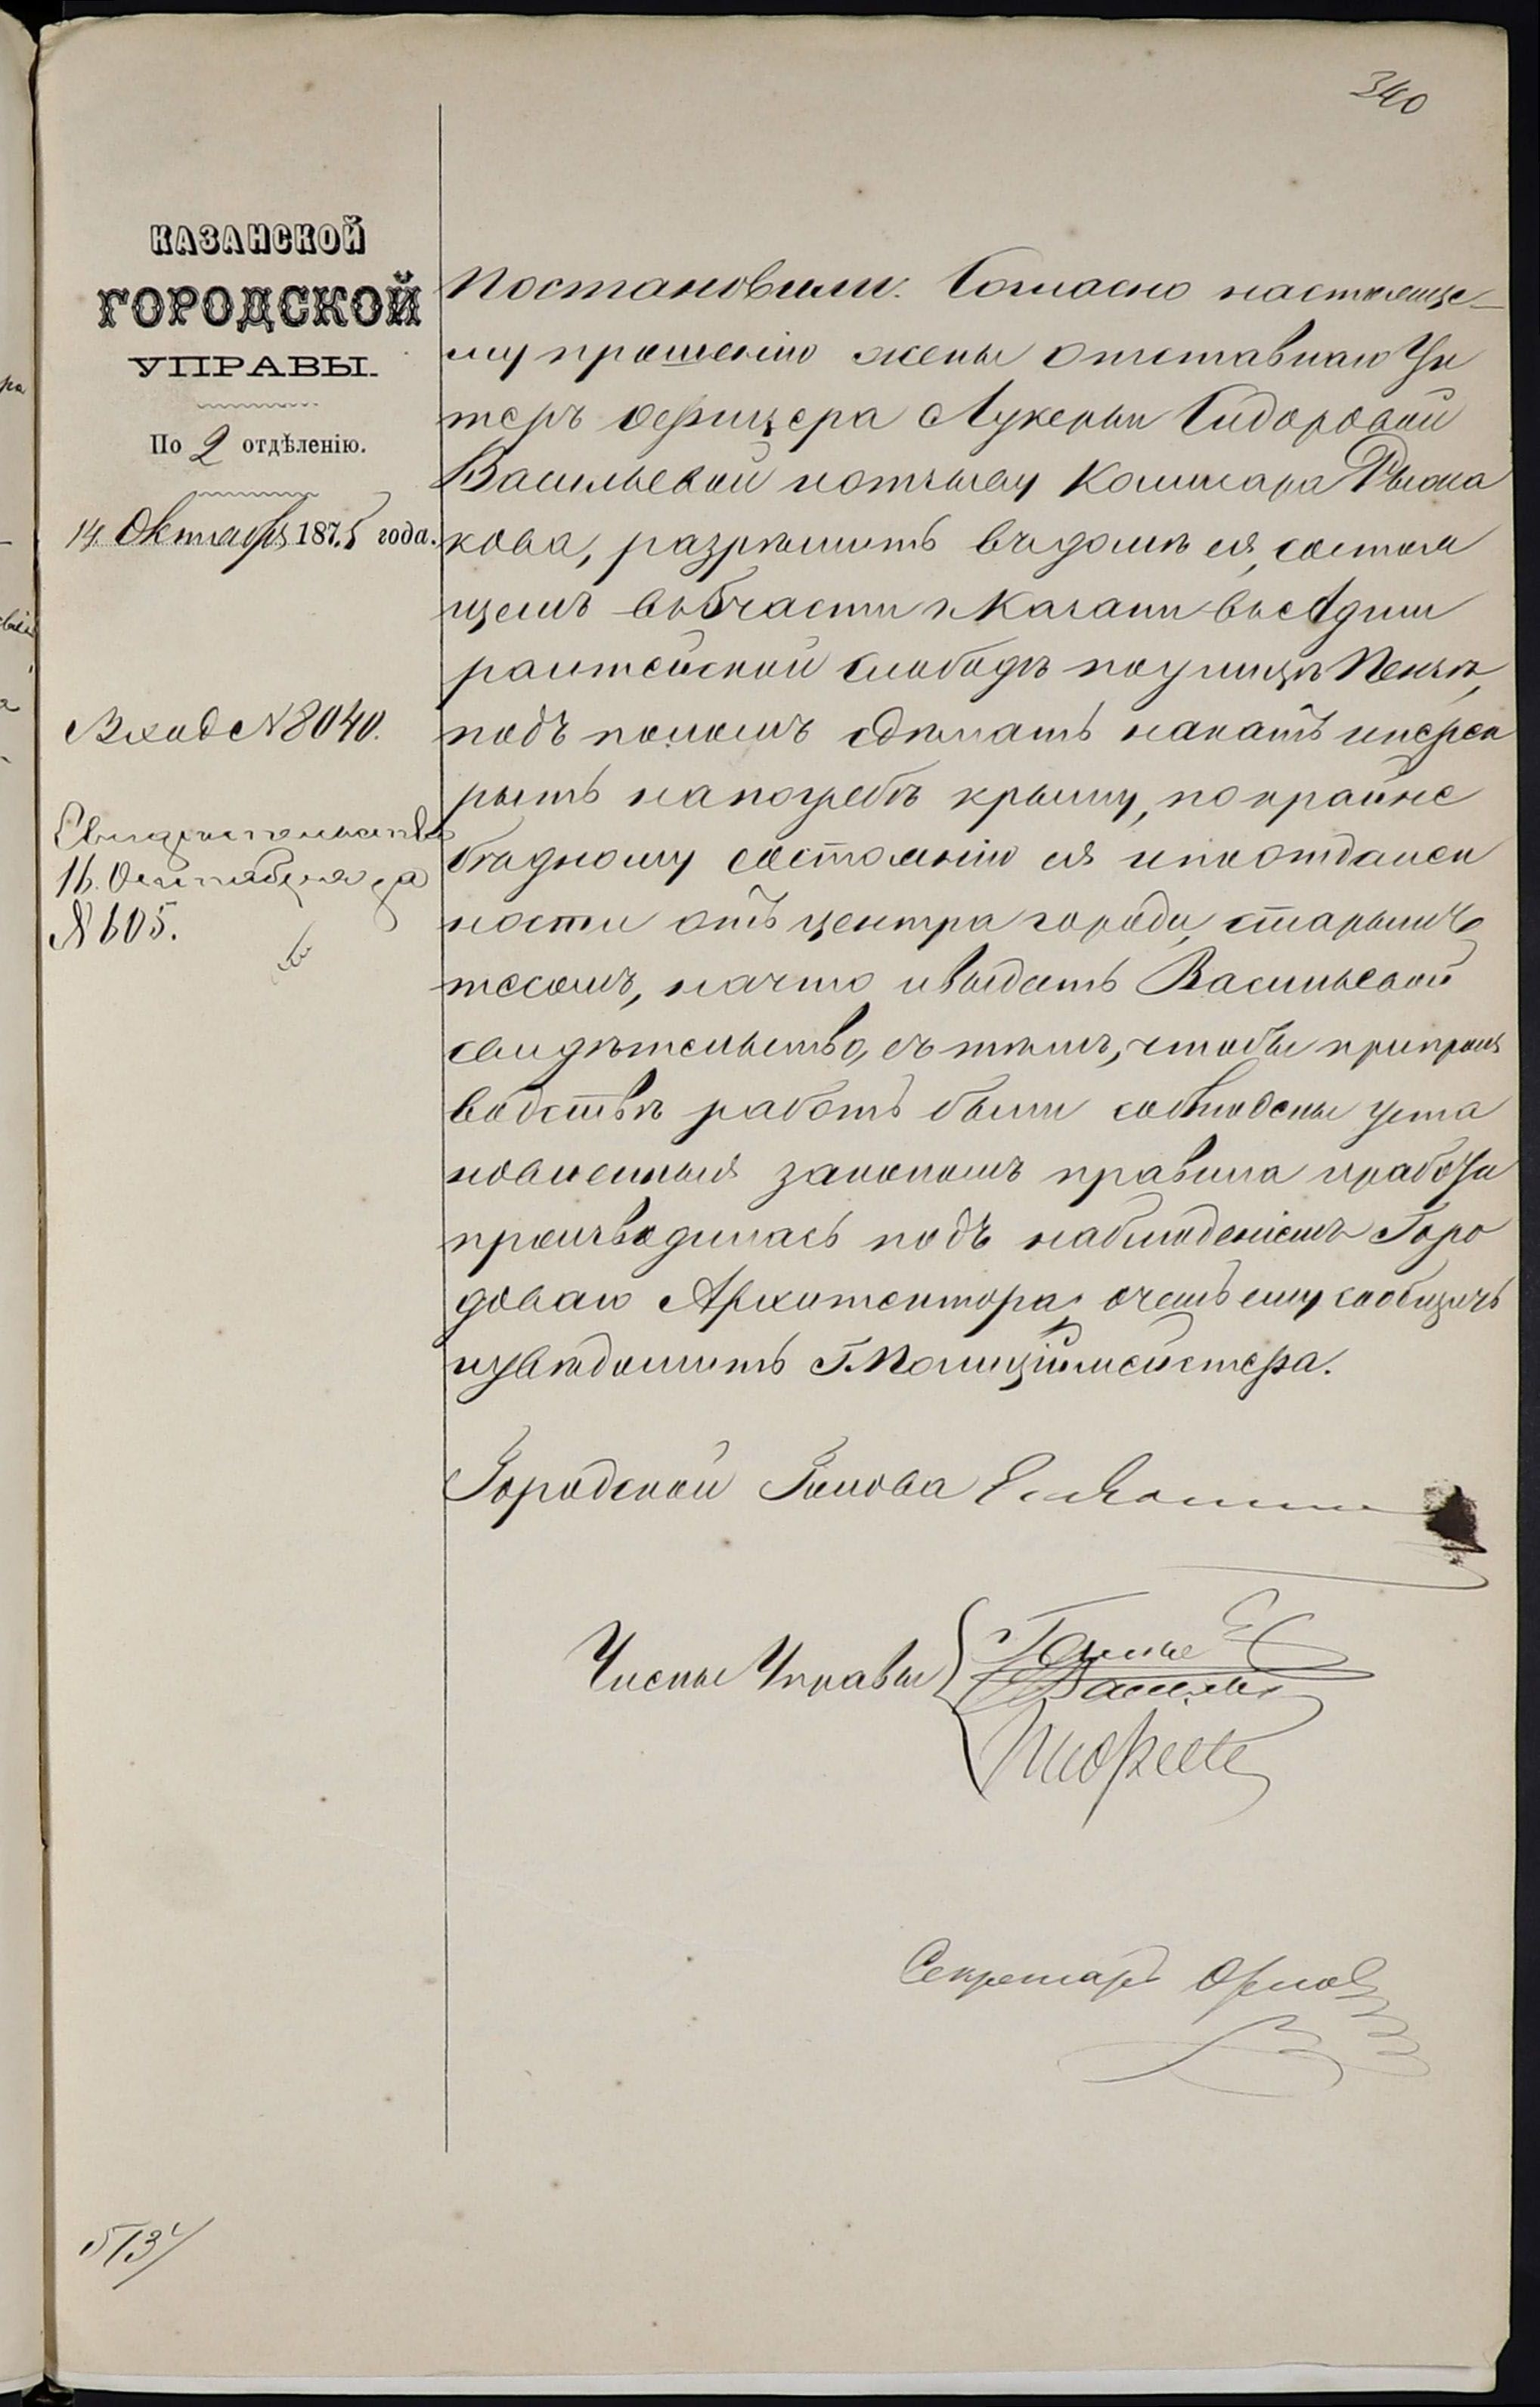 340
КАЗАНСКОЙ
ГОРОДСКОЙ
УПРАВЫ.
По 2 отдѣленію.
14 Октября 1875 года.
Вход №8040.
Свидѣтельство
16. Октября за
№ 605.
Постановили. Согласно настояще-
му прошенію жены отставнаго Ун
теръ офицера Лукерьи Сидоровой
Васильевой и отзыву Коммисара Рыжа
кова, разрѣшить въ домѣ ея, состоя
щемъ въ 5 части г. Казани въ Адми
ралтейской слободѣ по улицѣ
подъ поломъ сдѣлать накатъ и перек
рыть на погребѣ крышу, по крайне
бѣдному состоянію ея и по отдален
ности отъ центра города, старымъ
тесомъ, на что и выдать Васильевой
свидѣтельство, съ тѣмъ, чтобы при произ
водствѣ работъ были соблюдены уста
новленныя закономъ правила и работы
производилась подъ наблюденіемъ Горо
доваго Архитектора, о чемъ ему сообщить
и увѣдомить Г. Полиціймейстера.
Городской Голова
Члены Управы
Секретарь Орловъ
513